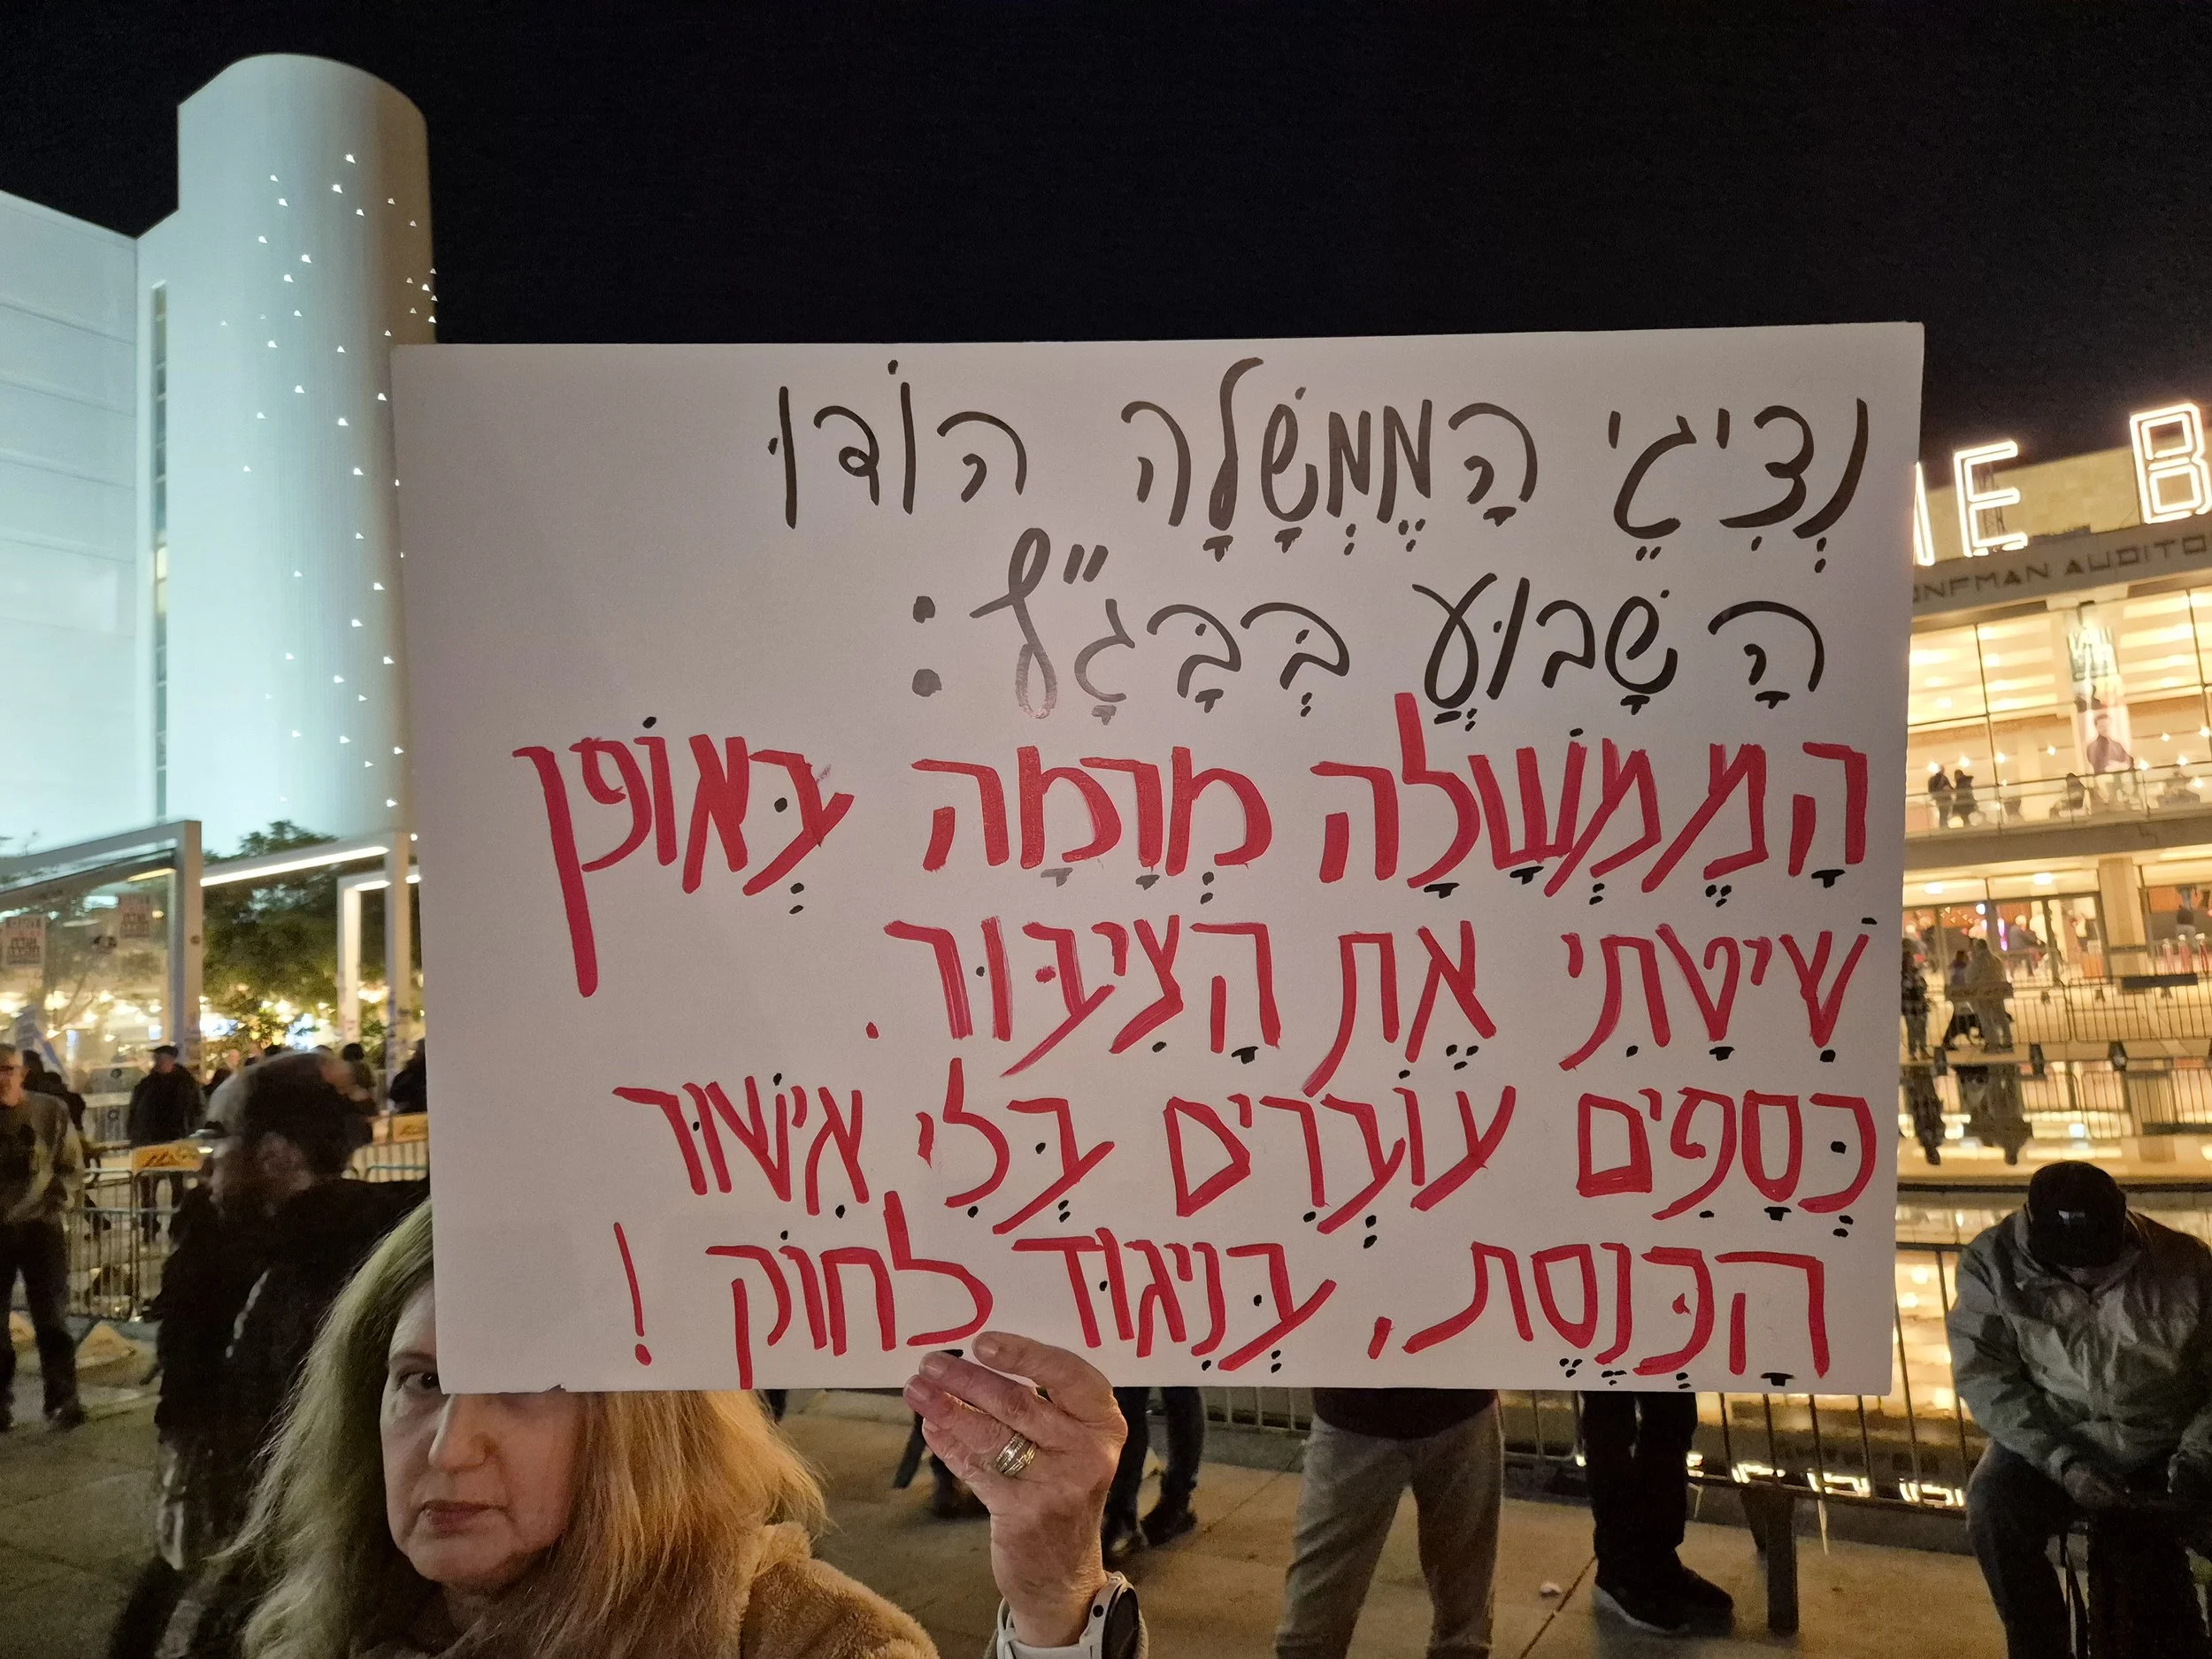 נְצִיגֵי הַמֶּמְשָׁלָה הוֹדוּ
הַשָּׁבוּעַ בְּבָּגָ״ץ:
הָמֶמְשָׁלָה מְרָמָה בְּאוֹפן
שִׁיטָתִי אֶת הָצִיבּוּר.
כְּסָפִים עוֹבְרִים בְּלִי אִישׁוּר
הַכְּנֶסֶת, בְּנִיגוּד לְחוֹק!
ME B
ONFMAN AUDITO